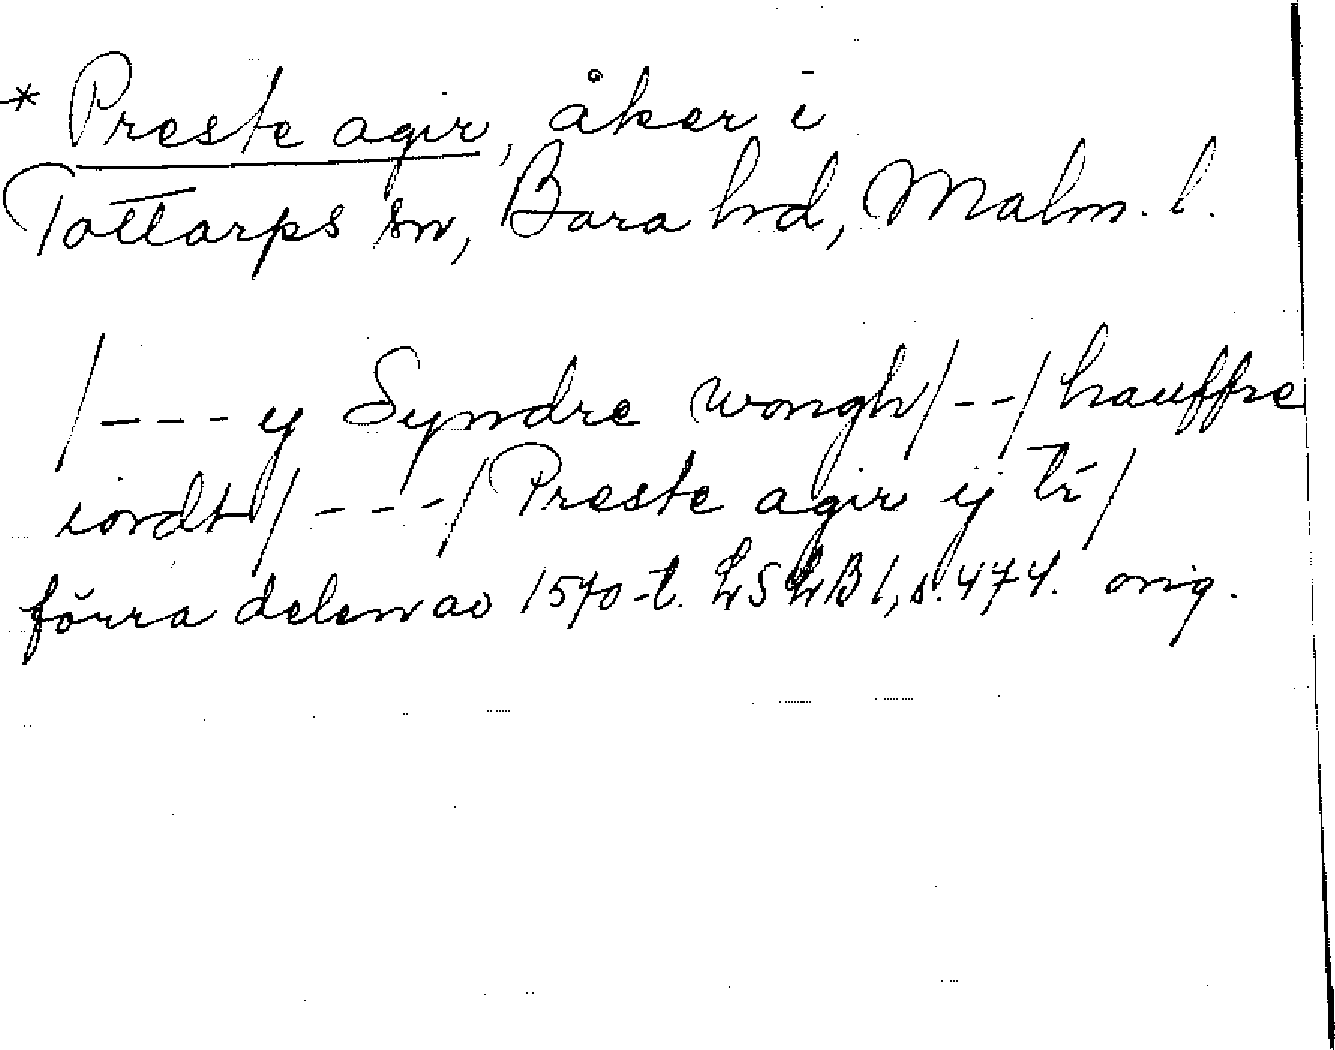 * Preste agir, åker i
Tottarps sn, Bara hd, Malm. l.
/---y Syndre wongh/--/hauffre
iordt/---/Preste agir ij tr/
förra delen av 1570-t. LSLB 1, s. 474. orig.